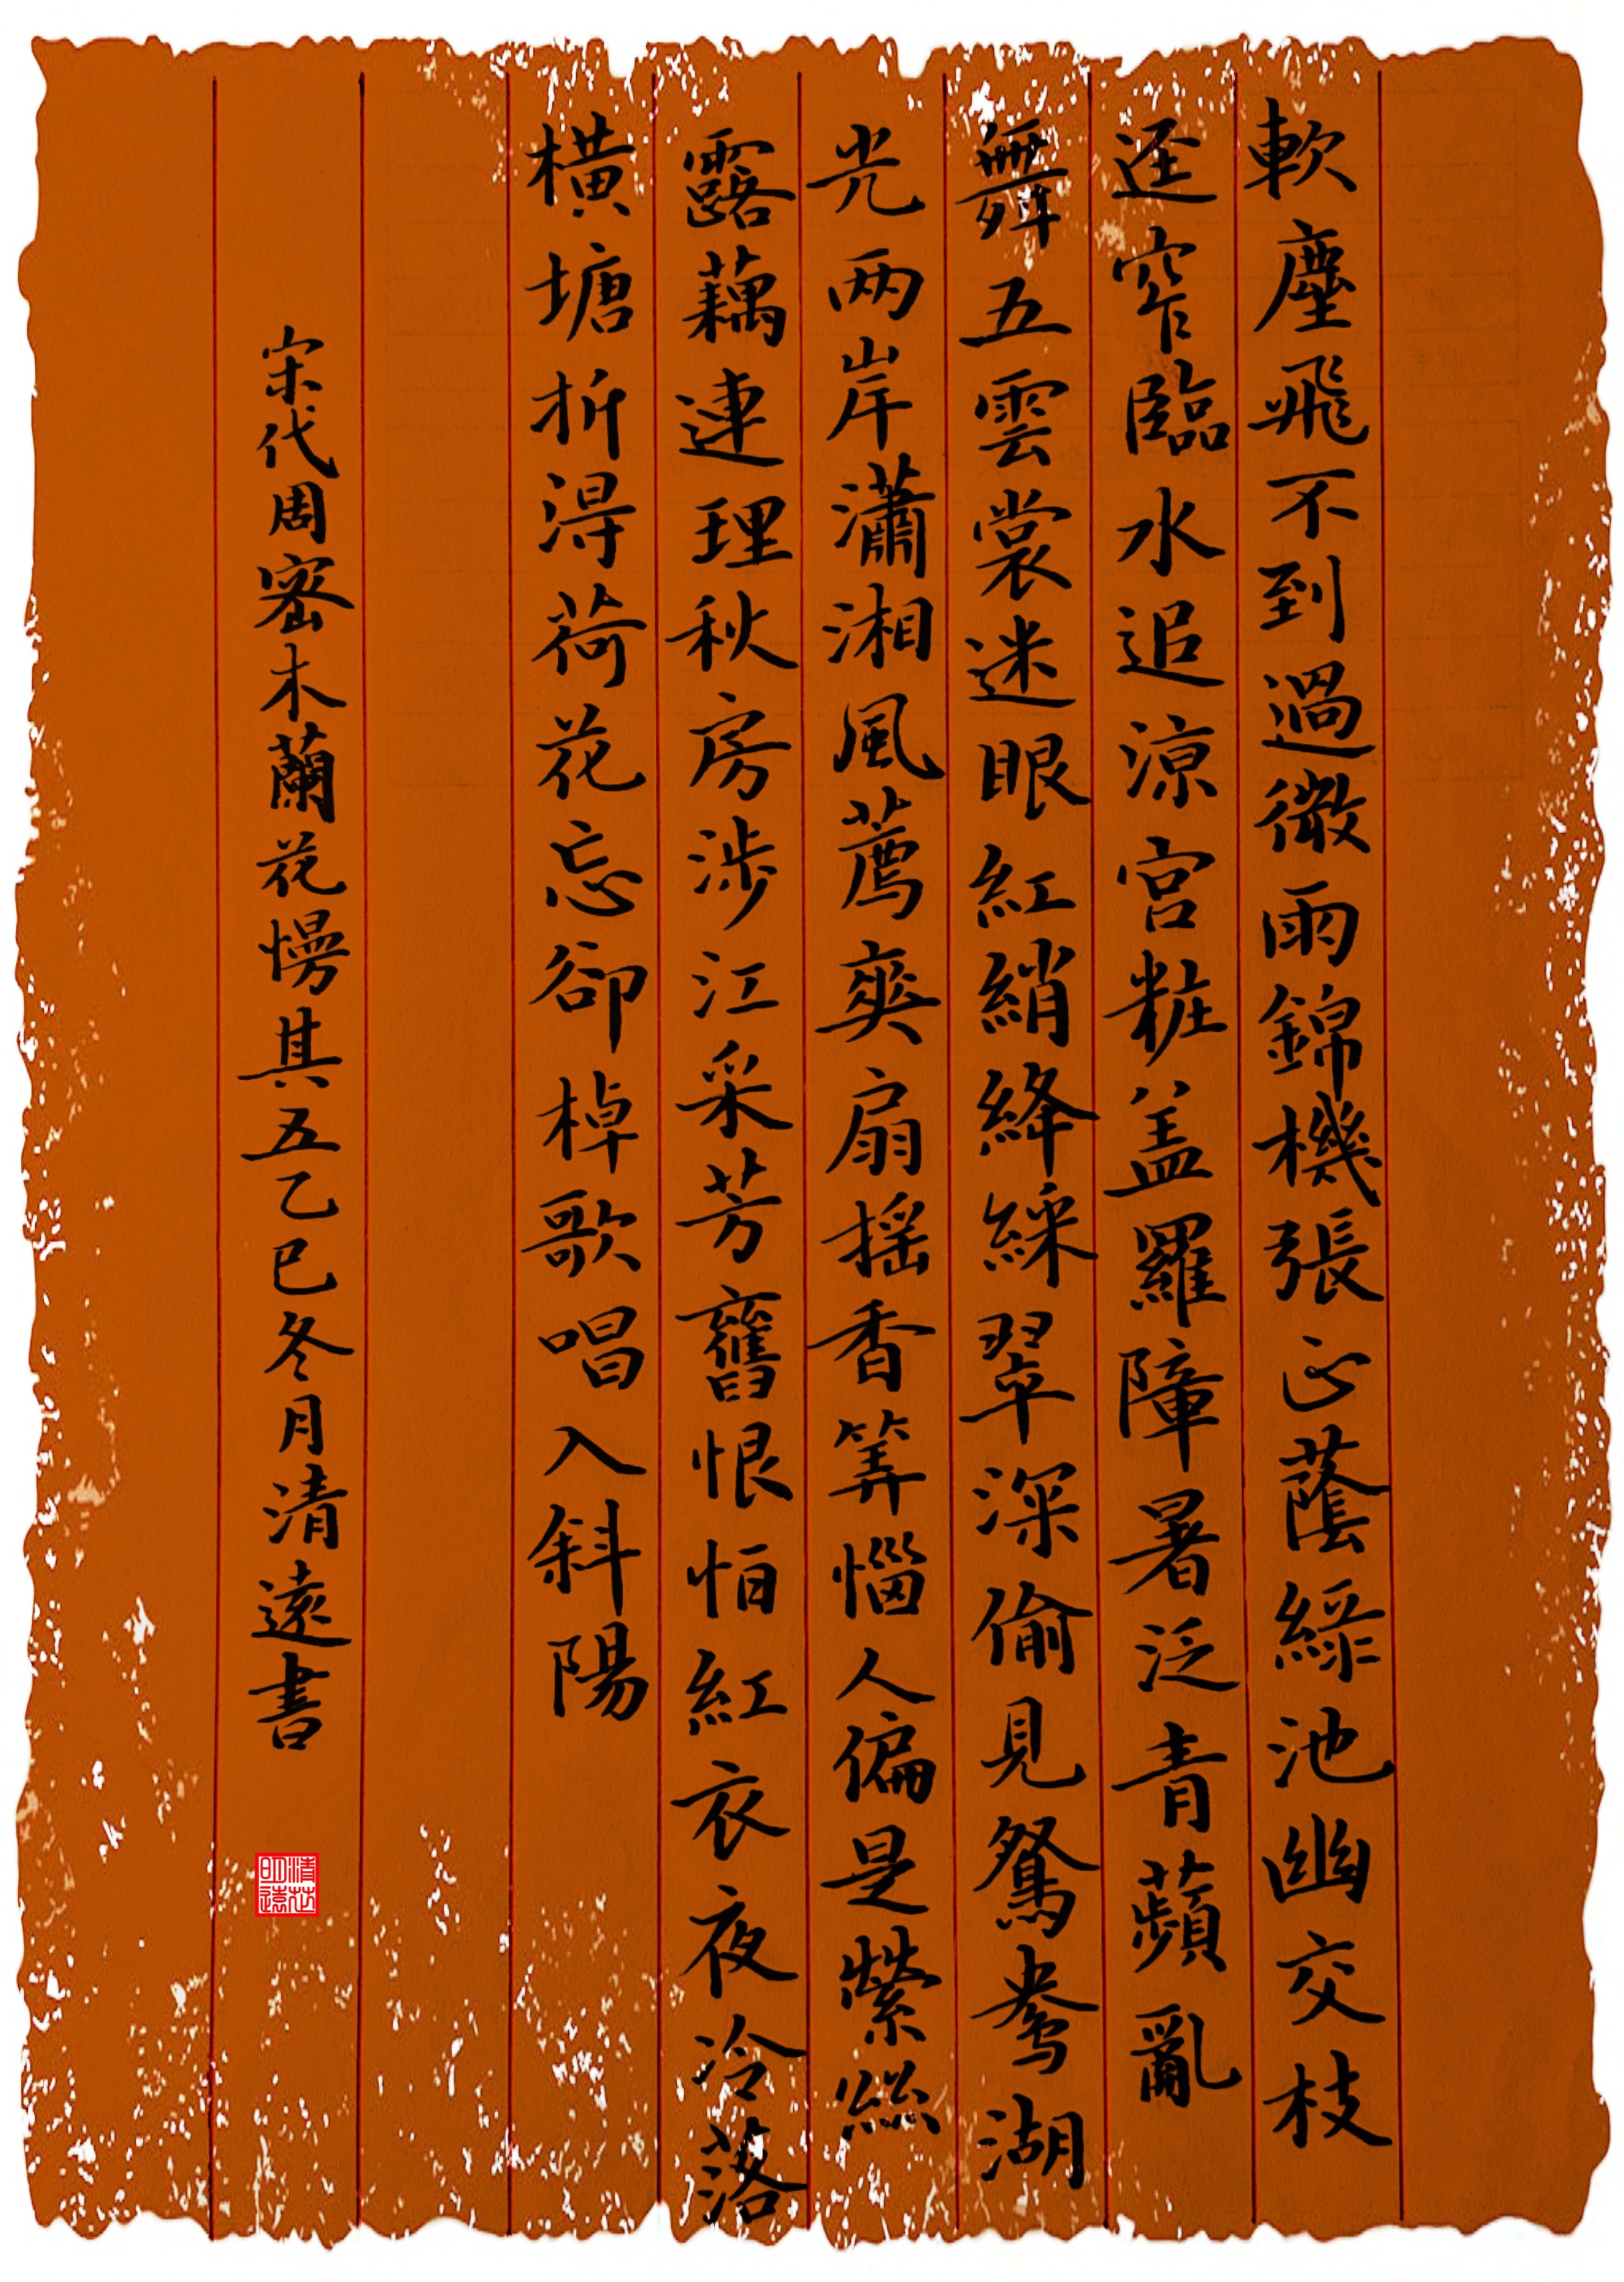 軟塵飛不到過微雨錦機張正蔭綠池幽交枝
逕窄臨水追涼宮粧盖羅障暑泛青蘋亂
舞五雲裳迷眼紅綃絳綵翠深偷見鴛鴦湖
光两岸瀟湘風薦爽扇揺香筭惱人偏是縈絲
露藕連理秋房涉江采芳舊恨怕紅衣夜冷落
橫塘折淂荷花忘卻棹歌唱入斜陽
宋代周密木蘭花慢其五乙巳冬月清遠書